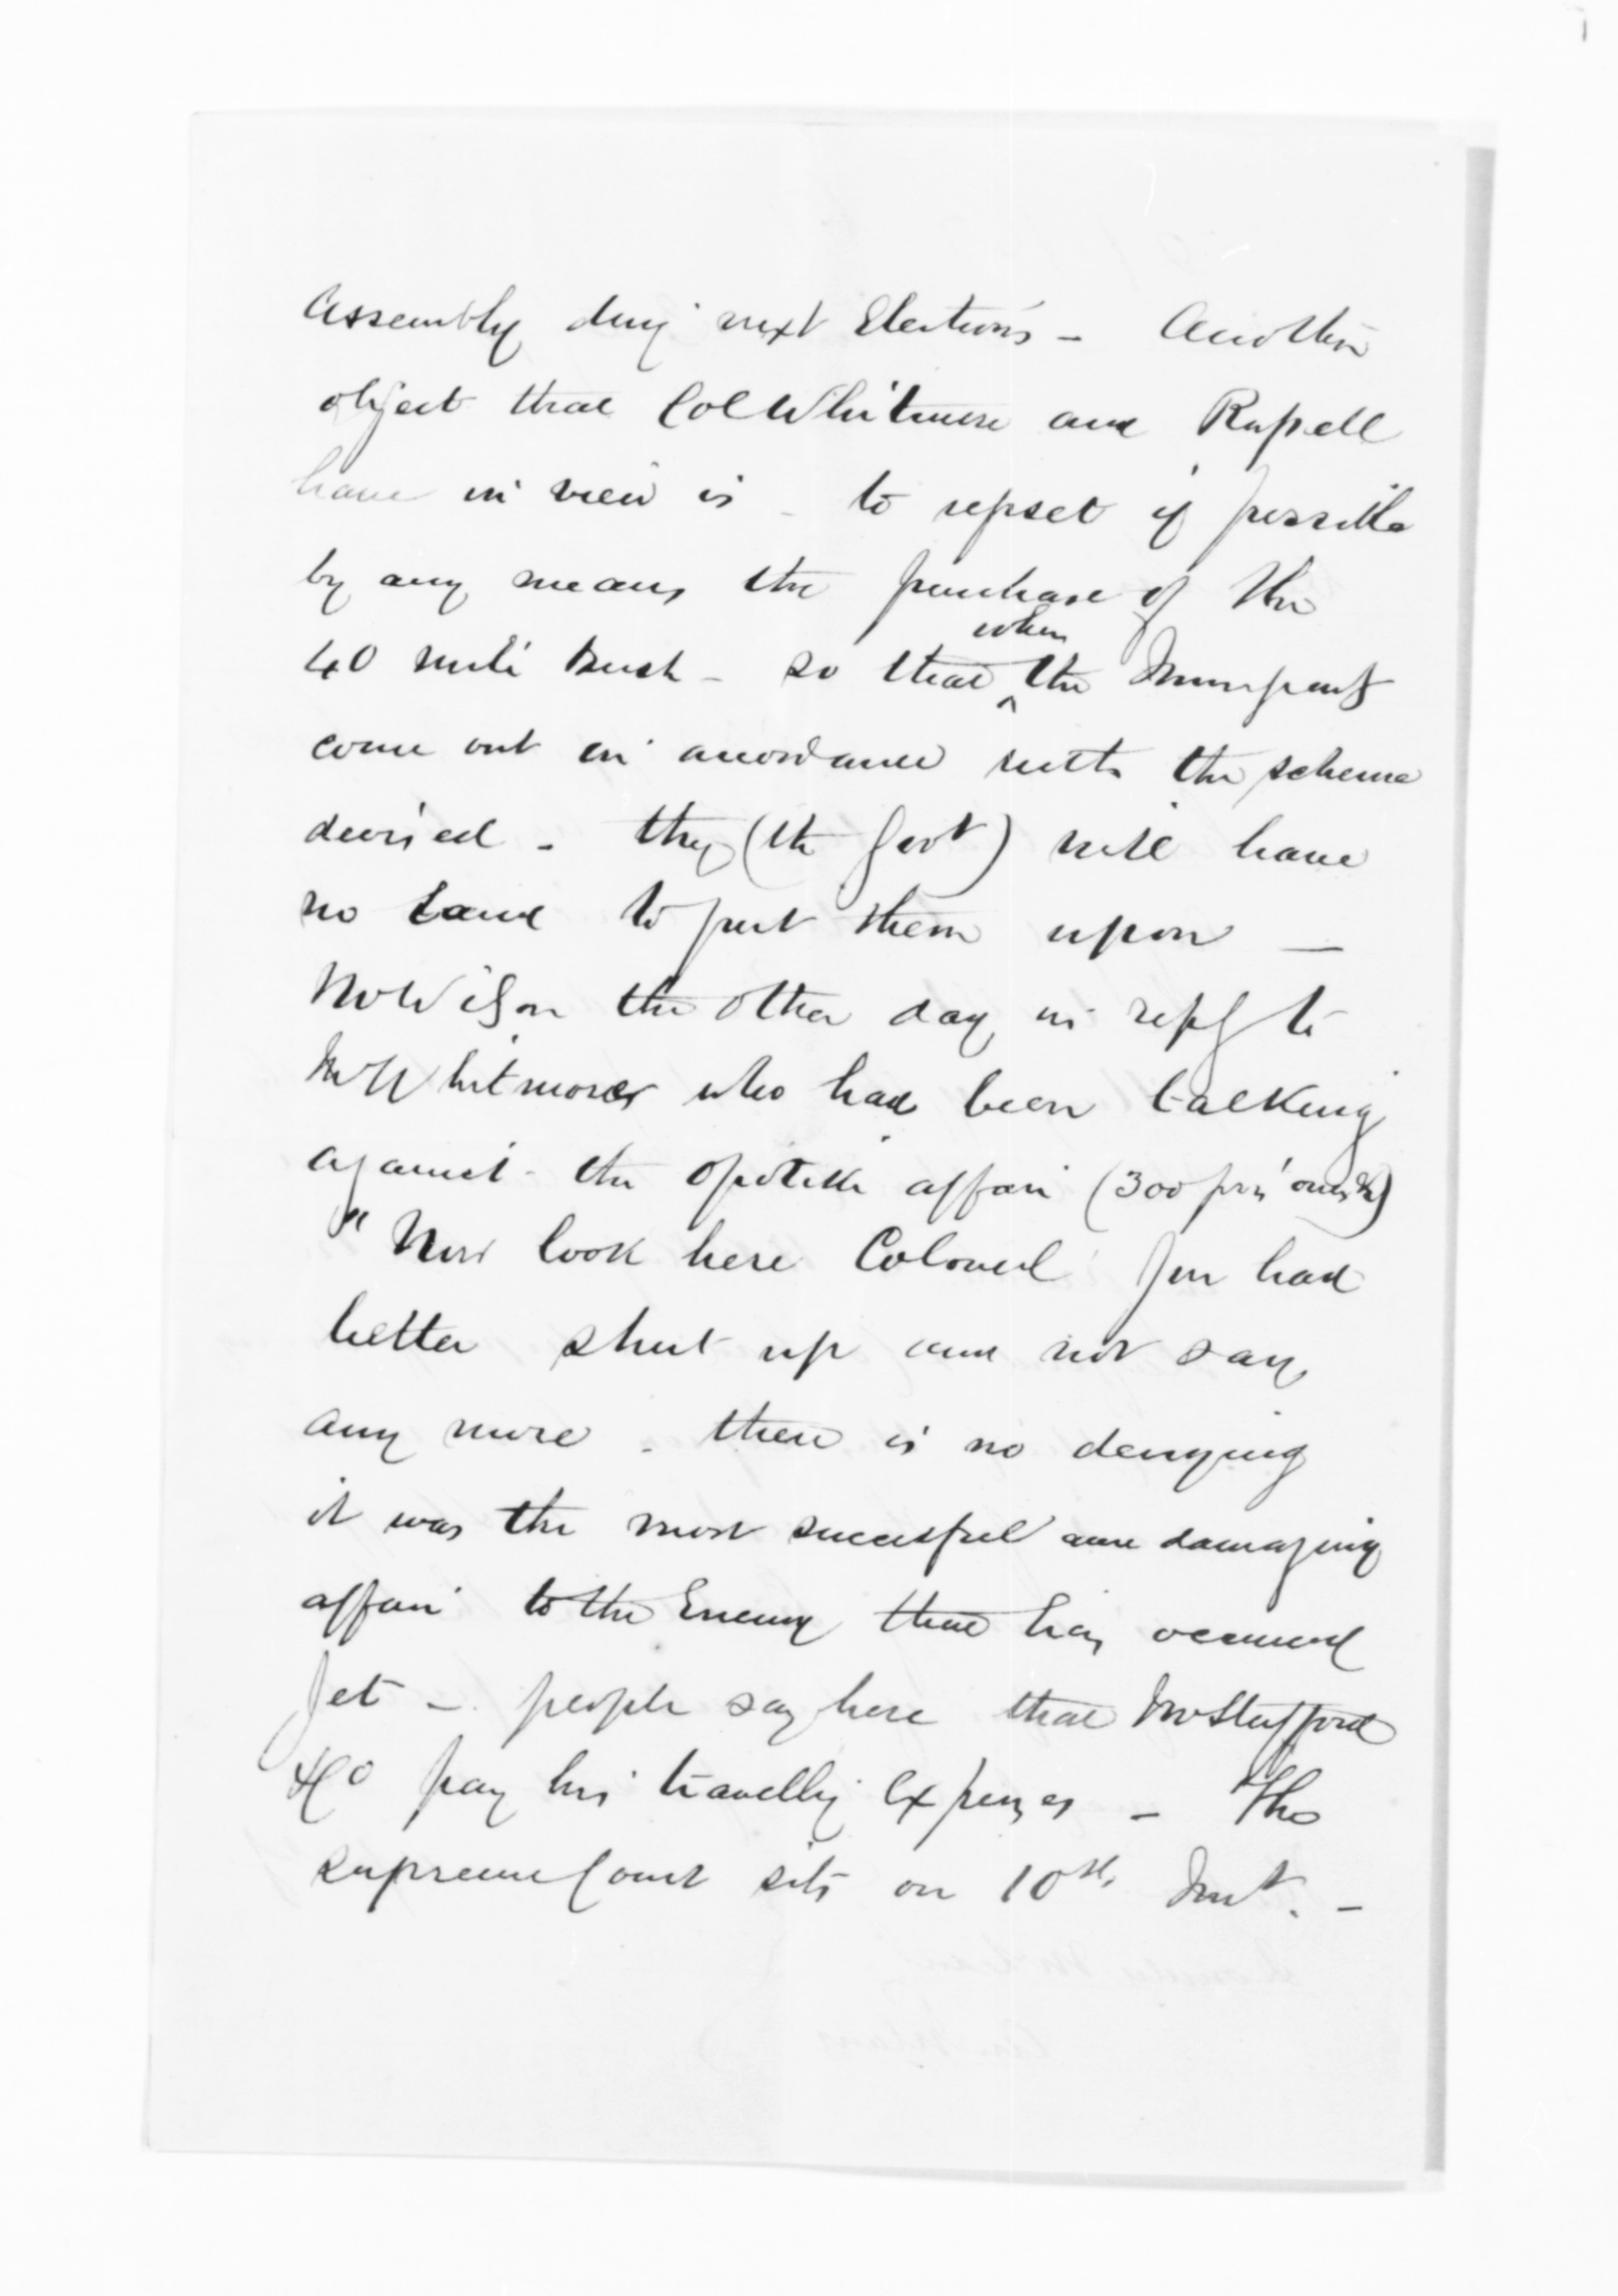 Assembly dug next Elections - Another
object that Col Whitmore and Russell
have in view is - to upset if possible
by any means the purchase of the
when
40 mile Bush - so that ^ the Immigrants
come out in accordance with the scheme
devised - they (the Govt) will have
no Land to put them upon -
Mr Wilson the other day in reply to
Mr Whitmore who had been talking
against the Opotiki affair (300 pris'oners &c)
"Now look here Colonel you had
better shut up and not say
any more - there is no denying
it was the most successful and damaging
affair to the Enemy that has occurred
yet - people say here that Mr Stafford
& Co pay his travellg expenses - The
Supreme Court sits on 10th. Inst. -